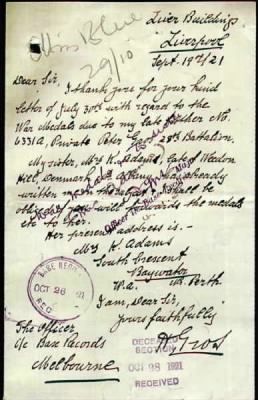 Liver Buildings
Liverpool
Sept. 19th/21
29/10
Dear Sir,
I thank you for your kind
letter of July 30th with regard to the
War Medals due to my late brother No.
6331A, Private Peter 28th Battalion.
My sister, Mrs K. Adams, late of
Hill, Denmark, Albany has already
written me in that I shall be
if you will forwards the medals
etc to her.
Her present address is. -
Mrs K. Adams
South Crescent
Bayswater
W.A. Perth.
I am, Dear Sir,
Yours faithfully
The Officer
i/c Base Records
Melbourne
BASE RECORDS
OCT 26
DECEASED
SECTION
OCT 28 1921
RECEIVED